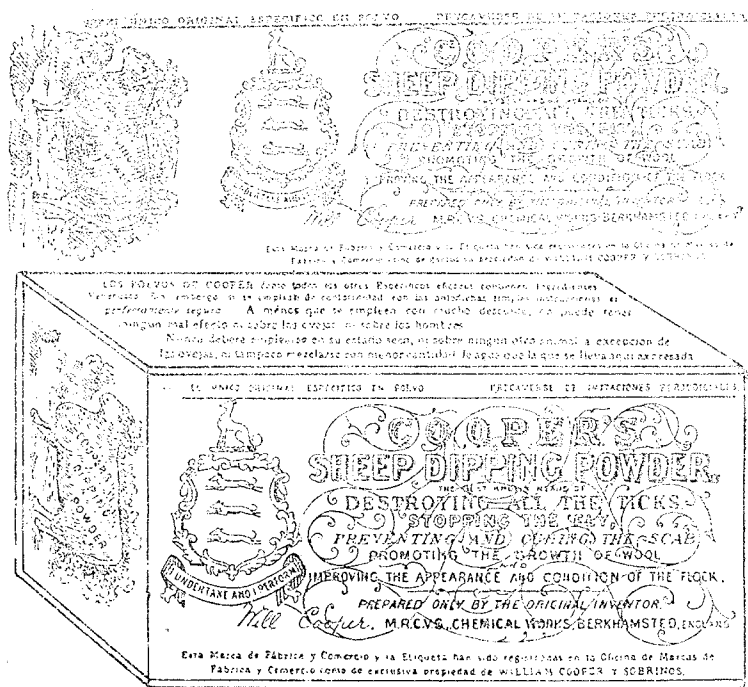 ÚNICO ORIGINAL ESPECÍFICO EN POLVO PRECAVERSE DE
COOPER'S
SHEEP DIPPING POWDER.
DESTROYING ALL THE TICKS
PREVENTING AND CURING THE SCAB
PROMOTING THE GROWTH OF WOOL
THE APPEARANCE AND CONDITION OF THE FLOCK
PREPARED ONLY BY THE ORIGINAL INVENTOR
Will Cooper M.R.C.V.S. CHEMICAL WORKS BERKHAMSTED
Esta Marca de Fábrica y Comercio y la Etiqueta han sido registradas en la Oficina de Marcas de
Fábrica y Comercio como de exclusiva propiedad de WILLIAM COOPER Y SOBRINOS
LOS POLVOS DE COOPER como todos los otros Específicos eficaces contienen Ingredientes
Venenosos. Sin embargo si se emplean de conformidad con las antedichas simples instrucciones es
perfectamente seguro. A menos que se empleen con mucho descuido, no puede tener
ningun mal efecto ni sobre las ovejas, ni sobre los hombres
Nunca debiera emplearse en su estado seco, ni sobre ningun otro animal a excepcion de
las ovejas, ni tampoco mezclarse con menor cantidad de agua que la que se lleva aqui expresada
EL UNICO ORIGINAL ESPECIFICO EN POLVO PRECAVERSE DE IMITACIONES PERJUDICIALES.
COOPER'S
SHEEP DIPPING POWDER.
THE BEST KNOWN MEANS OF
DESTROYING ALL THE TICKS
STOPPING THE FLY,
PREVENTING AND CURING THE SCAB
PROMOTING THE GROWTH OF WOOL
AND
IMPROVING THE APPEARANCE AND CONDITION OF THE FLOCK.
PREPARED ONLY BY THE ORIGINAL INVENTOR.
Will Cooper. M.R.C.V.S. CHEMICAL WORKS, BERKHAMSTED, ENGLAND
I UNDERTAKE AND I PERFORM
COOPER'S
DIPPING
POWDER
Esta Marca de Fábrica y Comercio y la Etiqueta han sido registradas en la Oficina de Marcas de
Fábrica y Comercio como de exclusiva propiedad de WILLIAM COOPER Y SOBRINOS.